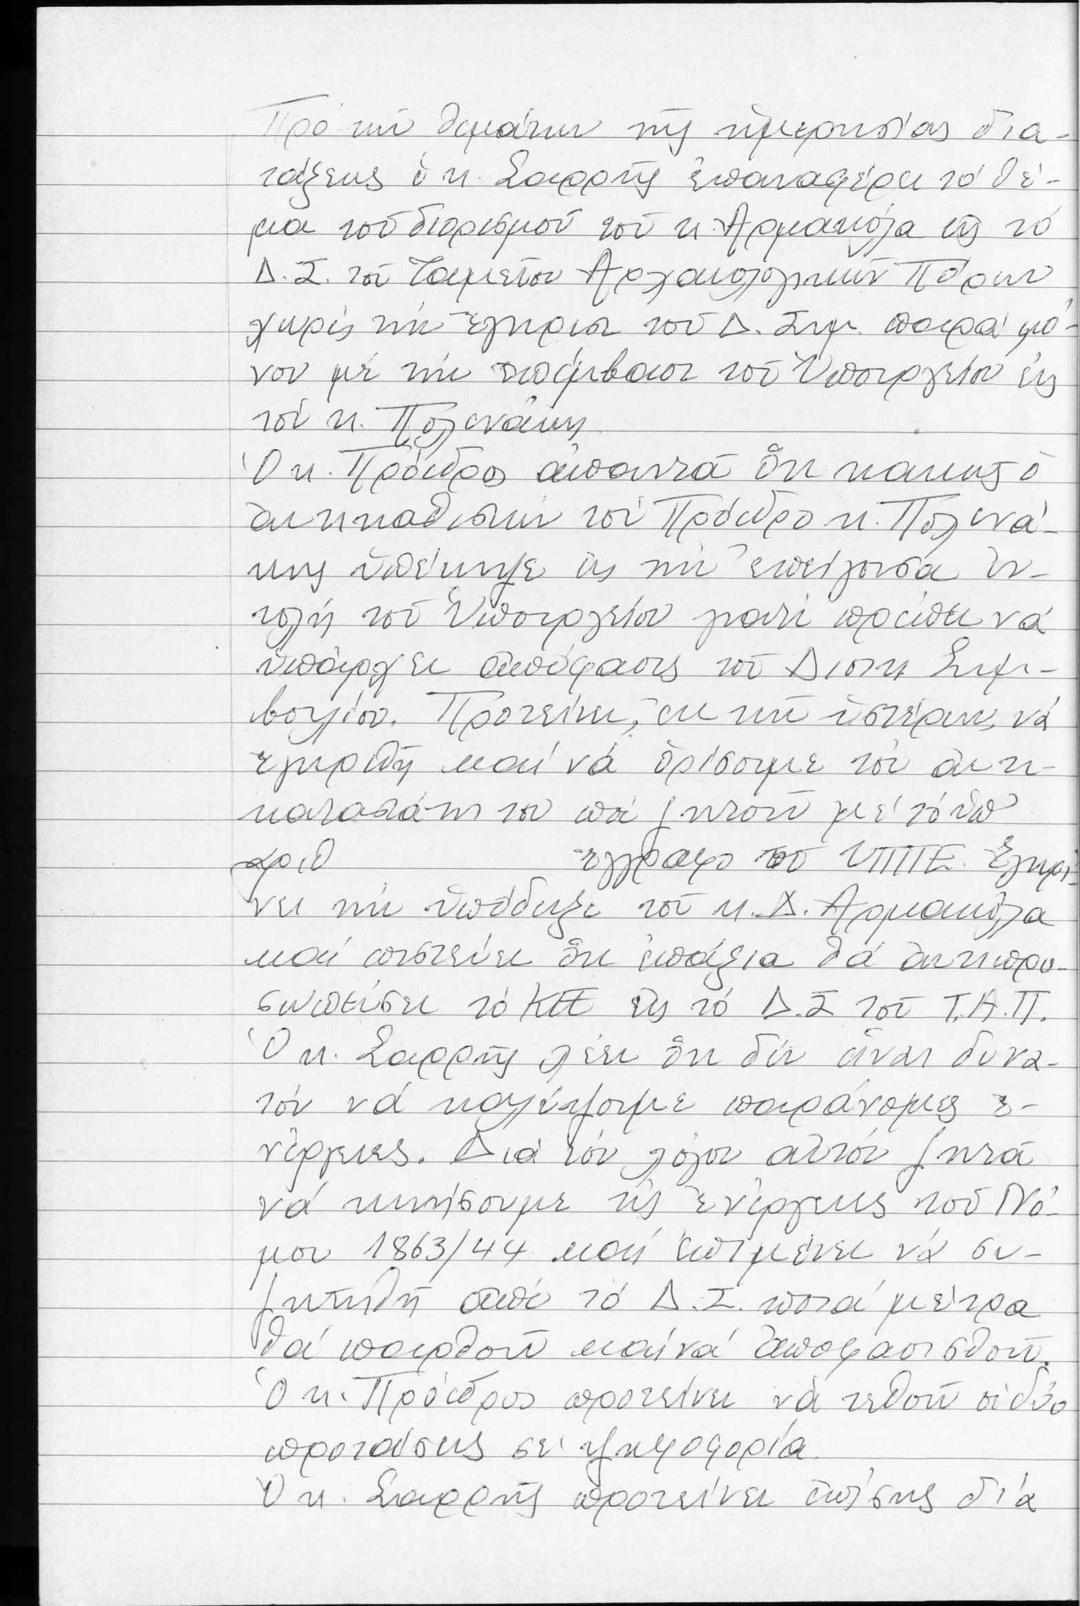 Πρό τῶν θεμάτων τῆς ἡμερησίας δια-
τάξεως ὁ κ. Σαρρῆς ἐπαναφέρει τό θέ-
μα τοῦ διορισμοῦ τοῦ κ. Ἀρμακόλα εἰς τό
Δ.Σ. τοῦ Ταμείου Ἀρχαιολογικῶν Πόρων
χωρίς τήν ἔγκρισι τοῦ Δ. Συμ. παρά μό-
νον μέ τήν παρέμβασι τοῦ Ὑπουργείου εἰς
τόν κ. Πωλενάκη.
Ὁ κ. Πρόεδρος ἀπαντᾶ ὅτι κακῶς ὁ
ἀντικαθιστῶν τόν Πρόεδρο κ. Πωλενά-
κης ὑπέκυψε εἰς τήν ἐπείγουσα ἐν-
τολή τοῦ Ὑπουργείου γιατί πρέπει νά
ὑπάρχει ἀπόφασις τοῦ Διοικ Συμ-
βουλίου. Προτείνει, ἐκ τῶν ὑστέρων, νά
ἐγκριθῆ καί νά ὁρίσουμε τόν ἀντι-
καταστάτη του πού ζητοῦν μέ τό ὑπ
ἀριθ ἔγγραφο τοῦ ΥΠΠΕ. Ἐγκρί-
νει τήν ὑπόδειξι τοῦ κ. Δ. Ἀρμακόλα
καί πιστεύει ὅτι ἐπάξια θά ἀντιπρο-
σωπεύσει τό ΚΕΕ εἰς τό Δ.Σ τοῦ Τ.Α.Π.
Ὁ κ. Σαρρῆς λέει ὅτι δέν εἶναι δυνα-
τόν νά καλύψουμε παράνομες ἐ-
νέργειες. Διά τόν λόγον αὐτόν ζητᾶ
νά κινήσουμε τίς ἐνέργειες τοῦ Νό-
μου 1863/44 καί ἐπιμένει νά συ-
ζητηθῆ ἀπό τό Δ.Σ. ποιά μέτρα
θά παρθοῦν καί νά ἀποφασισθοῦν.
Ὁ κ. Πρόεδρος προτείνει νά τεθοῦν οἱ δύο
προτάσεις σέ ψηφοφορία.
Ὁ κ. Σαρρῆς προτείνει ἐπίσης διά